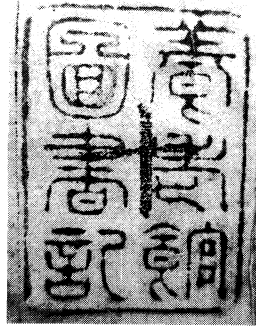 養老館
圖書記